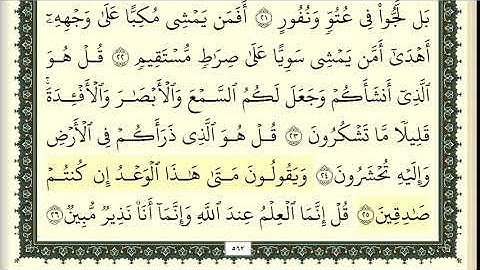 بَل لَّجُّوا۟ فِى عُتُوٍّ وَنُفُورٍ ٢١ أَفَمَن يَمْشِى مُكِبًّا عَلَىٰ وَجْهِهِۦٓ
أَهْدَىٰٓ أَمَّن يَمْشِى سَوِيًّا عَلَىٰ صِرَٰطٍ مُّسْتَقِيمٍ ٢٢ قُلْ هُوَ
ٱلَّذِىٓ أَنشَأَكُمْ وَجَعَلَ لَكُمُ ٱلسَّمْعَ وَٱلْأَبْصَٰرَ وَٱلْأَفْـِٔدَةَ ۖ
قَلِيلًا مَّا تَشْكُرُونَ ٢٣ قُلْ هُوَ ٱلَّذِى ذَرَأَكُمْ فِى ٱلْأَرْضِ
وَإِلَيْهِ تُحْشَرُونَ ٢٤ وَيَقُولُونَ مَتَىٰ هَٰذَا ٱلْوَعْدُ إِن كُنتُمْ
صَٰدِقِينَ ٢٥ قُلْ إِنَّمَا ٱلْعِلْمُ عِندَ ٱللَّهِ وَإِنَّمَآ أَنَا۠ نَذِيرٌ مُّبِينٌ ٢٦
٥٦٣